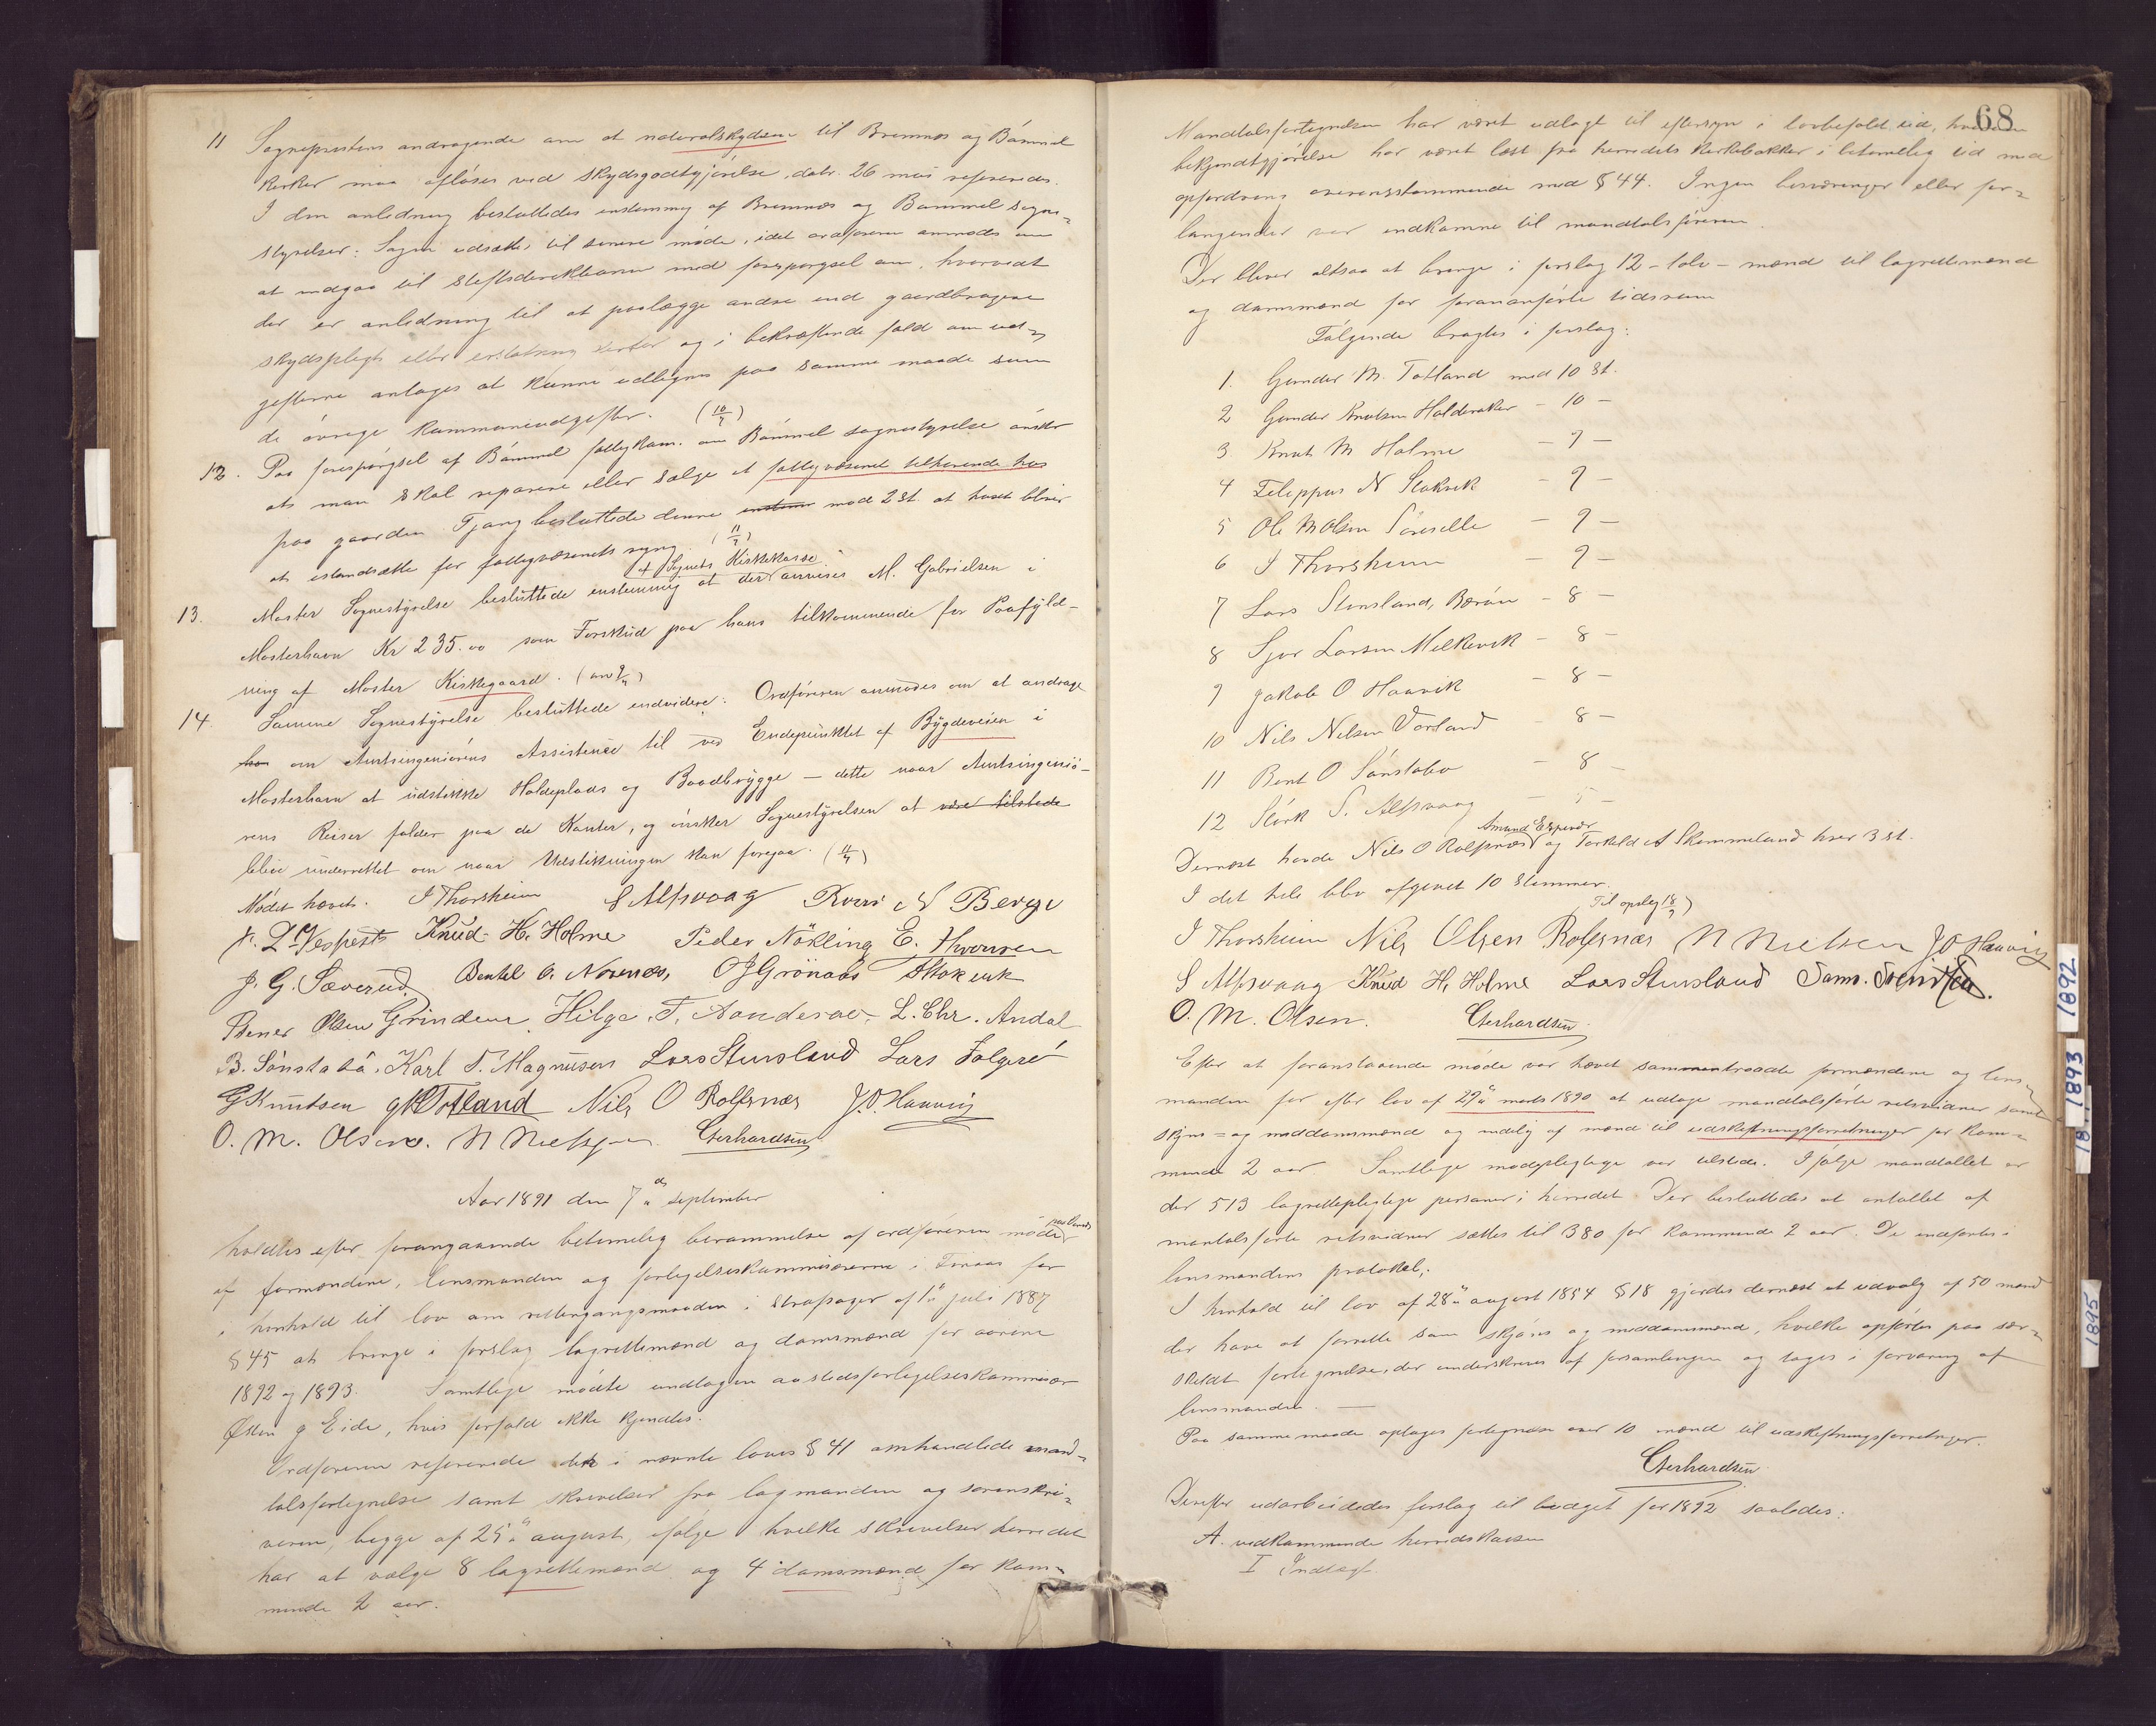 11 Sogneprestens andragende om at naturalskydsen til Bremnes og Bømmel
kirker maa afløses ved skydsgodtgjørelse, datr. 26 mai refereredes.
I den anledning besluttedes enstemmig af Bremnes og Bømmel sogne-
styrelser: Sagen udsættes til senere møde, idet ordføreren anmodes om
at indgaa til stiftsdirektionen med forespørgsel om, hvorvidt
der er anledning til at paalægge andre end gaardbrugere
skydspligt eller erstatning derfor og i bekræftende fald om ud-
gifterne antages at kunne udlignes paa samme maade som
de øvrige kommuneudgifter. (10/9)
12. Paa forespørgsel af Bømmel fattigkom. om Bømmel sognestyrelse ønsker
at man skal reparere eller sælge et fattigvæsenet tilhørende hus
paa gaarden Gjøng besluttede denne enstem mod 2 st. at huset bliver
at istandsætte for fattigvæsenets regning. (11/9)
+ Sognets Kirkekasse
13. Moster Sognestyrelse besluttede enstemmig at der anvises M. Gabrielsen i
Mosterhavn Kr 235.00 som Forskud paa hans tilkommende for Paafyld-
ning af Moster Kirkegaard. (anv 9/9)
14. Samme Sognestyrelse besluttede endvidere: Ordføreren anmodes om at andrage
han om Amtsingeniørens Assistence til ved Endepunktet af Bygdeveien i
Mosterhavn at udstikke Holdeplads og Baadbrygge – dette naar Amtsingeniø-
rens Reiser falder paa de Kanter, og ønsker Sognestyrelsen at være tilstede
blive underrettet om naar Udstikningen kan foregaa. (11/9)
Mødet hævet. I Thorsheim S Alfsvaag Berge
Knud H. Holme Peder Nökling E.
J. G. Sæverud. Bentel O. Norenes, O J Grönaas
Olsen Grindem Helge T. Aanderaa L. Chr. Andal
B. Sönstabö. Karl T. Magnusen Lars Stensland Lars
G Knutsen G M Totland Nils O Rolfsnæs J. O. Haavig
O. M. Olsen. N Nielsen Gerhardsen
Aar 1891 den 7de september
holdtes efter forangaaende betimelig berammelse af ordføreren møde
af formændene, lensmanden og forligelseskommissærerne i Foraas for
i henhold til lov om rettergangsmaaden i straffesager af 1ste juli 1887
§ 45 at bringe i forslag lagrettemænd og domsmænd for aarene
1892 og 1893. Samtlige mødte undtagen forligelseskommissær
Østen G Eide, hvis forfald ikke kjendtes.
Ordføreren refererede den i nævnte lovs § 41 omhandlede mand-
talsfortegnelse samt skrivelser fra lagmanden og sorenskri-
veren, begge af 25 august, ifølge hvilke skrivelser herredet
har at vælge 8 lagrettemænd og 4 domsmænd for kom-
mende 2 aar.
68
Mandtalsfortegnelsen har været udlagt til eftersyn i lovbefalet tid, hvorom
bekjendtgjørelse har været læst fra herredets kirkebakker i betimelig tid med
opfordring overensstemmende med § 44. Ingen besværinger eller for-
langender var indkomne til mandtalsføreren.
Der bliver altsaa at bringe i forslag 12 – tolv – mænd til lagrettemænd
og domsmænd for foranførte tidsrum
Følgende bragtes i forslag:
1. Gunder M. Totland med 10 St.
2 Gunder Knutsen Holderaker – 10 –
3 Knut M Holme – 9 –
4 Filippus N Stokvik – 9 –
5 Ole M Olsen – 9 –
6 I Thorsheim – 9 –
7 Lars Stensland, Børøen – 8 –
8 Sjur Larsen Melkevik – 8 –
9 Jakob O Haavik – 8 –
10 Nils Nilsen Vorland – 8 –
11 Bent O Sønstabø – 8 –
12 Størk S. Alfsvaag – 5 –
Amund Espevær
Dernæst havde Nils O Rolfsnæs og Torkild A Skimmeland hver 3 st.
I det hele blev afgivet 10 stemmer.
Til opslag 18/9)
I Thorsheim Nils Olsen Rolfsnæs N Nielsen J. O. Haavig
S Alfsvaag Knud H. Holme Lars Stensland Sams. Svendsen.
O. M. Olsen. Gerhardsen
Efter at foranstaaende møde var hævet sammentraadte formændene og lens-
manden for efter lov af 29 marts 1890 at udtage mandtalsførte retsvidner samt
skjøns- og meddomsmænd og endelig af mænd til udskiftningsforretninger for kom-
mende 2 aar. Samtlige mødepligtige var tilstede. Ifølge mandtallet er
der 513 lagrettepligtige personer i herredet. Der besluttedes at antallet af
mantalsførte retsvidner sættes til 380 for kommende 2 aar. De indførtes i
lensmandens protokol.
I henhold til lov af 28 august 1854 § 18 gjordes dernæst et udvalg af 50 mænd
der have at forrette som skjøns og meddomsmænd, hvilke opførtes paa sær-
skilt fortegnelse, der underskrives af forsamlingen og tages i forvaring af
lensmanden. —
Paa samme maade optages fortegnelse over 10 mænd til udskiftningsforretninger.
Gerhardsen
Derefter udarbeidedes forslag til budget for 1892 saaledes:
A. vedkommende herredskassen
I Indtægt.
1892
1893
18
1895